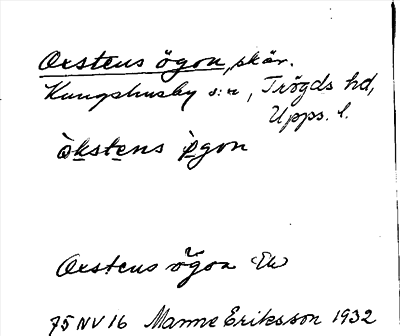 Oxstens ögon, skär.
Kungshusby s:n, Trögds hd,
Upps. l.
ò̱kste̱ns ö̱̀gon
Oxstens ögon Ek
75 NV 16 Manne Eriksson 1932